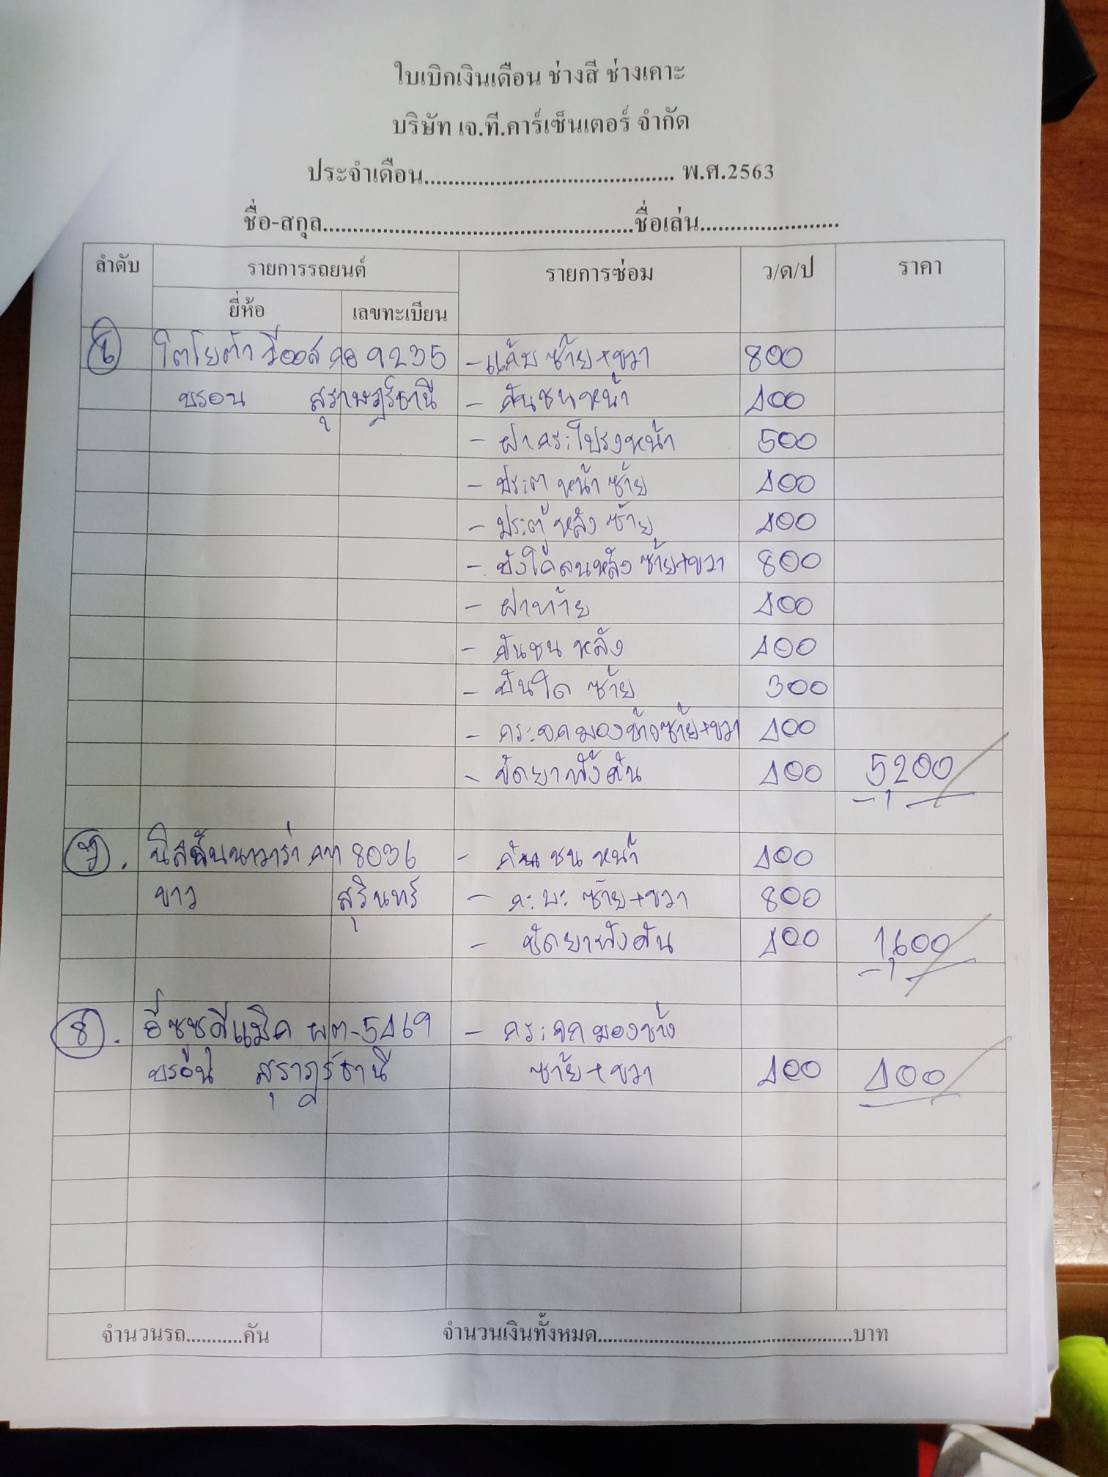 ใบเบิกเงินเดือน ช่างสี ช่างเคาะ
บริษัท เจ.ที.คาร์เซ็นเตอร์ จำกัด
ประจำเดือน.......................................... พ.ศ.2563
ชื่อ-สกุล....................................................ชื่อเล่น.......................
ลำดับ รายการรถยนต์ รายการซ่อม ว/ด/ป ราคา
ยี่ห้อ เลขทะเบียน
โตโยต้า วีออส 9235 - แก้ม ซ้าย+ขวา 800
บรอน สุราษฎร์ธานี - กันชนหน้า 400
- ฝากระโปรงหน้า 500
- ประตู หน้า ซ้าย 400
- ประตู หลัง ซ้าย 400
- บังโคลนหลัง ซ้าย+ขวา 800
- ฝาท้าย 400
- กันชน หลัง 400
- บันได ซ้าย 300
- กระจกมองข้างซ้าย+ขวา 400
- ขัดยาทั้งคัน 400 5,200
นิสสันนาวาร่า 8036 - กันชน หน้า 400
ขาว สุรินทร์ - กะบะ ซ้าย+ขวา 800
- ขัดยาทั้งคัน 400 1,600
8. อีซูซุดีแม็ค ผต-5469 - กระจกมองข้าง
บรอน สุราฎร์ธานี ซ้าย+ขวา 400 400
จำนวนรถ...........คัน จำนวนเงินทั้งหมด...................................................บาท